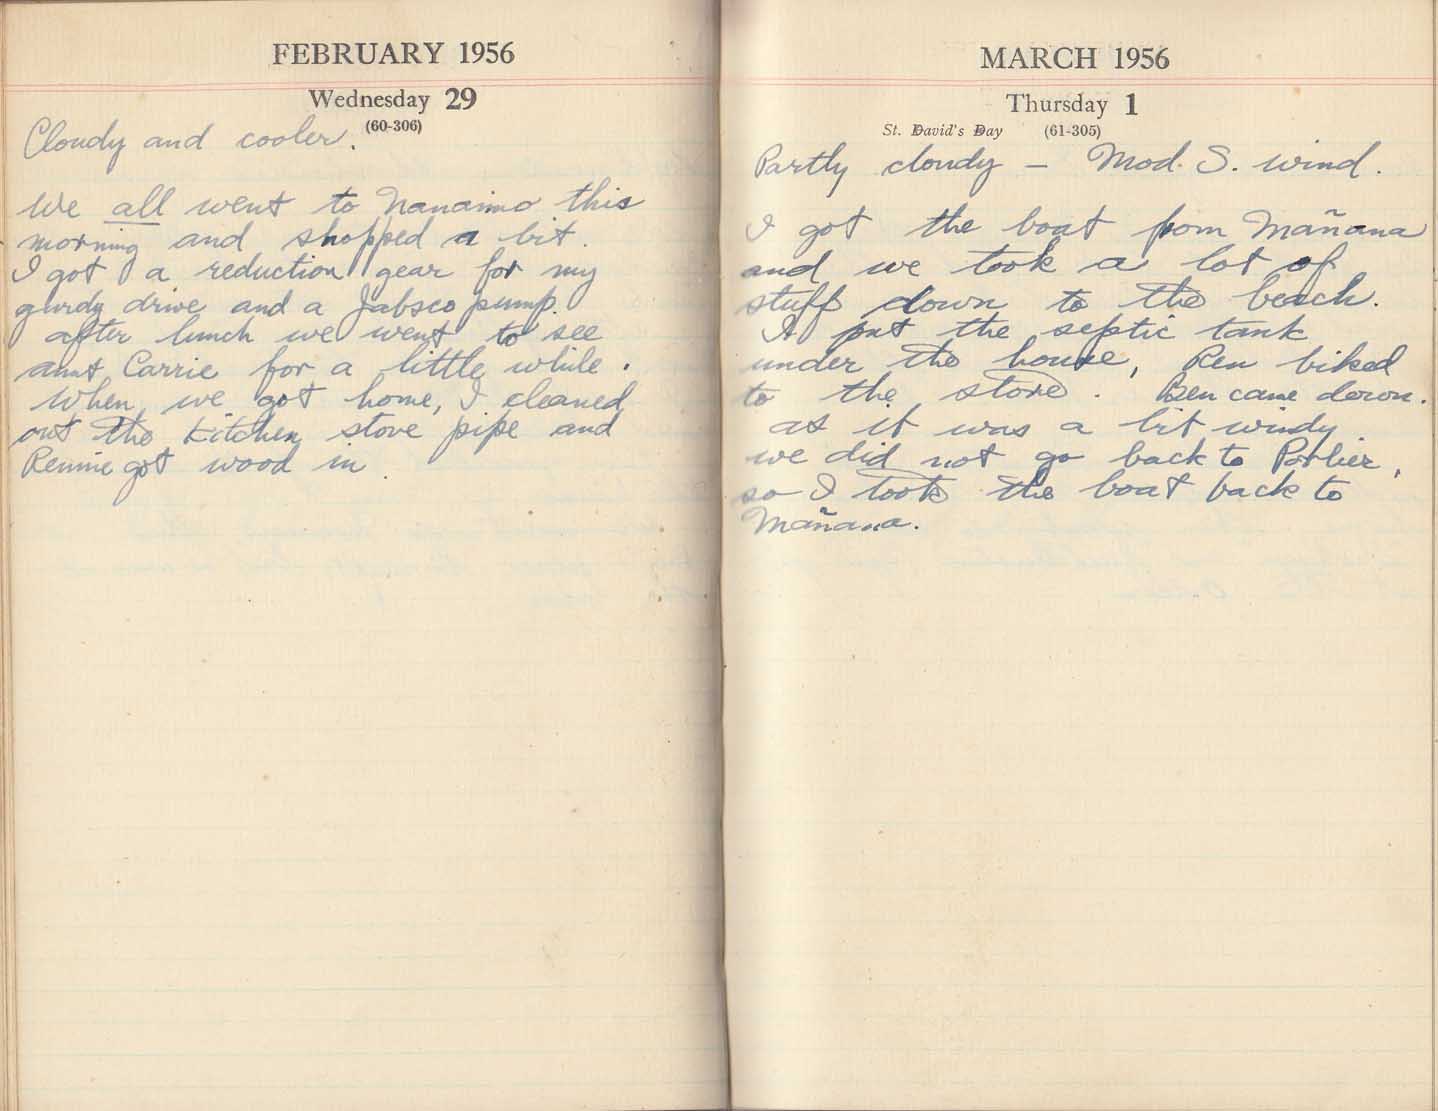 FEBRUARY 1956
Wednesday 29
(60-306)
Cloudy and cooler.
We all went to Nanaimo this
morning and shopped a bit.
I got a reduction gear for my
gurdy drive and a Jabsco pump.
after lunch we went to see
aunt Carrie for a little while.
When we got home, I cleaned
out the kitchen stove pipe and
Rennie got wood in.
MARCH 1956
Thursday 1
St. David's Day (61-305)
Partly cloudy – Mod. S. wind.
I got the boat from Mañana
and we took a lot of
stuff down to the beach.
I put the septic tank
under the house, Ren biked
to the store. Ben came down.
as it was a bit windy
we did not go back to Porlier,
so I took the boat back to
Mañana.